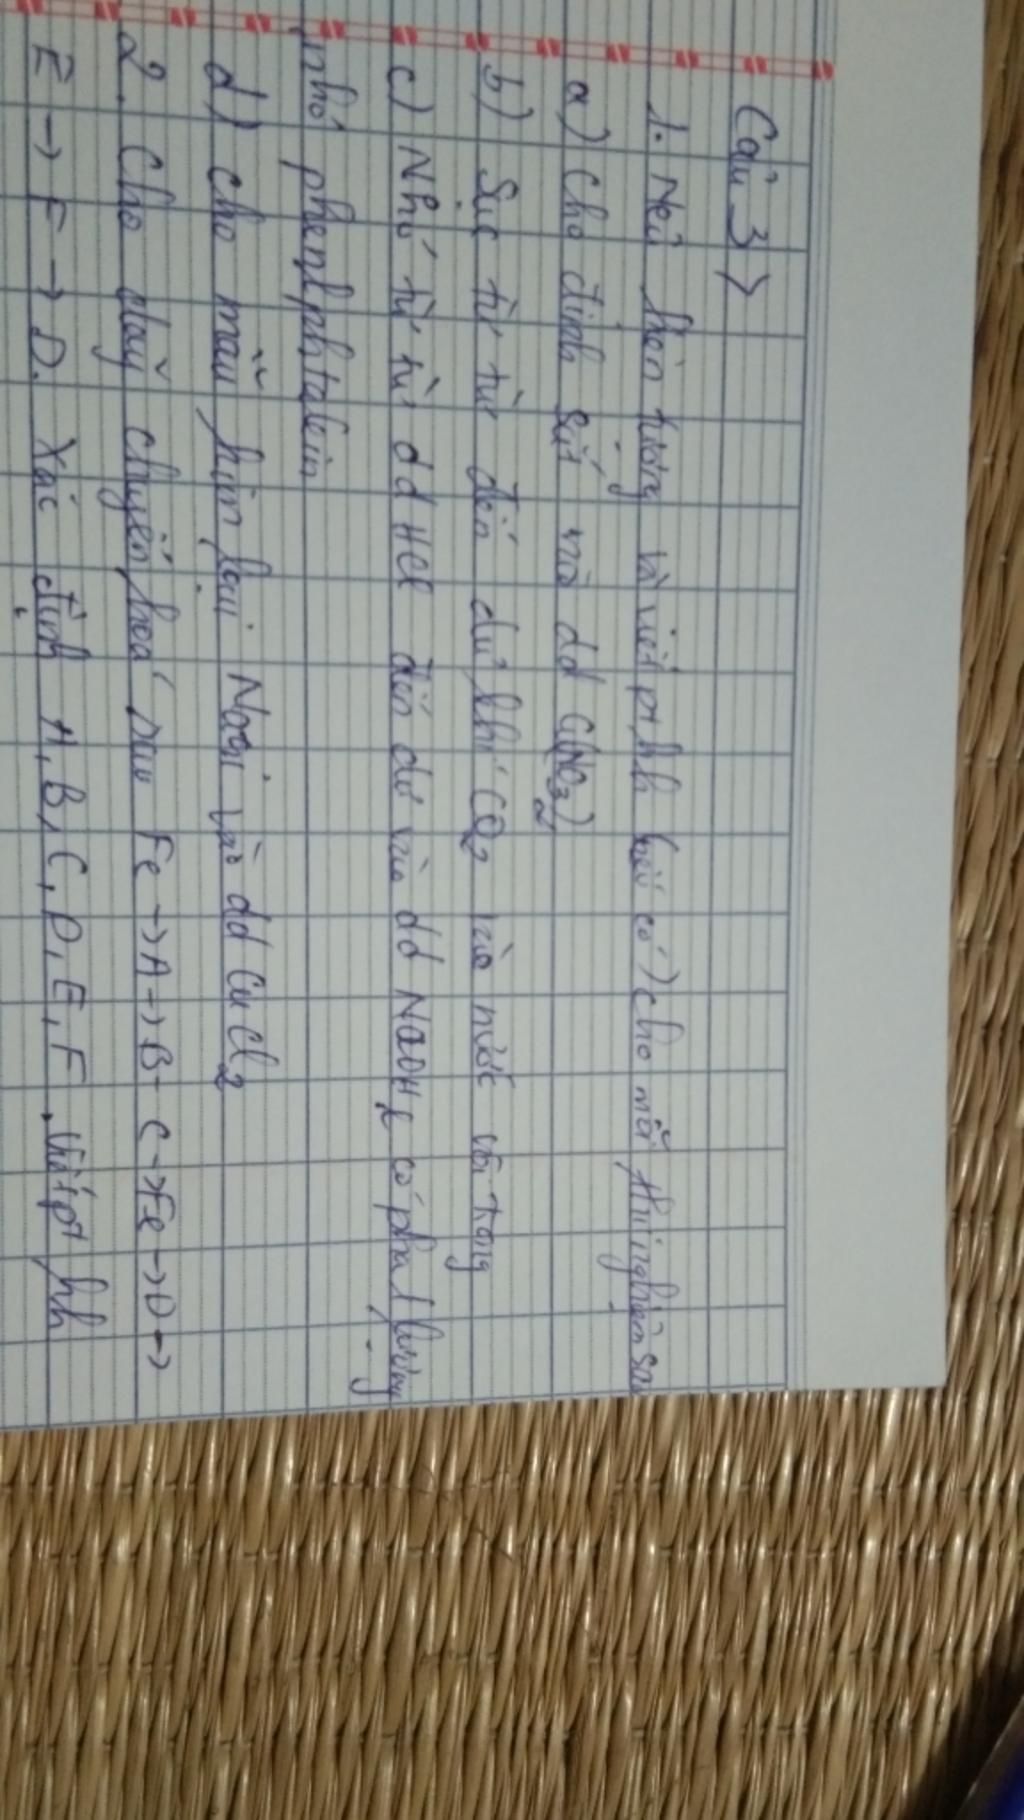 Câu 3>
1. Nêu hiện tượng và viết pt hh (nếu có) cho mỗi thí nghiệm sau
a) Cho đinh sắt vào dd Cu(NO3)2
b) Sục từ từ đến dư khí CO2 vào nước vôi trong
c) Nhỏ từ từ dd HCl đến dư vào dd NaOH có pha 1 lượng
nhỏ phenlphtalein
d) cho mẫu kim loại Natri vào dd CuCl2
2. Cho dãy chuyển hoá sau Fe → A → B - C → Fe → D →
E → F → D. Xác định A, B, C, D, E, F. Viết pt hh